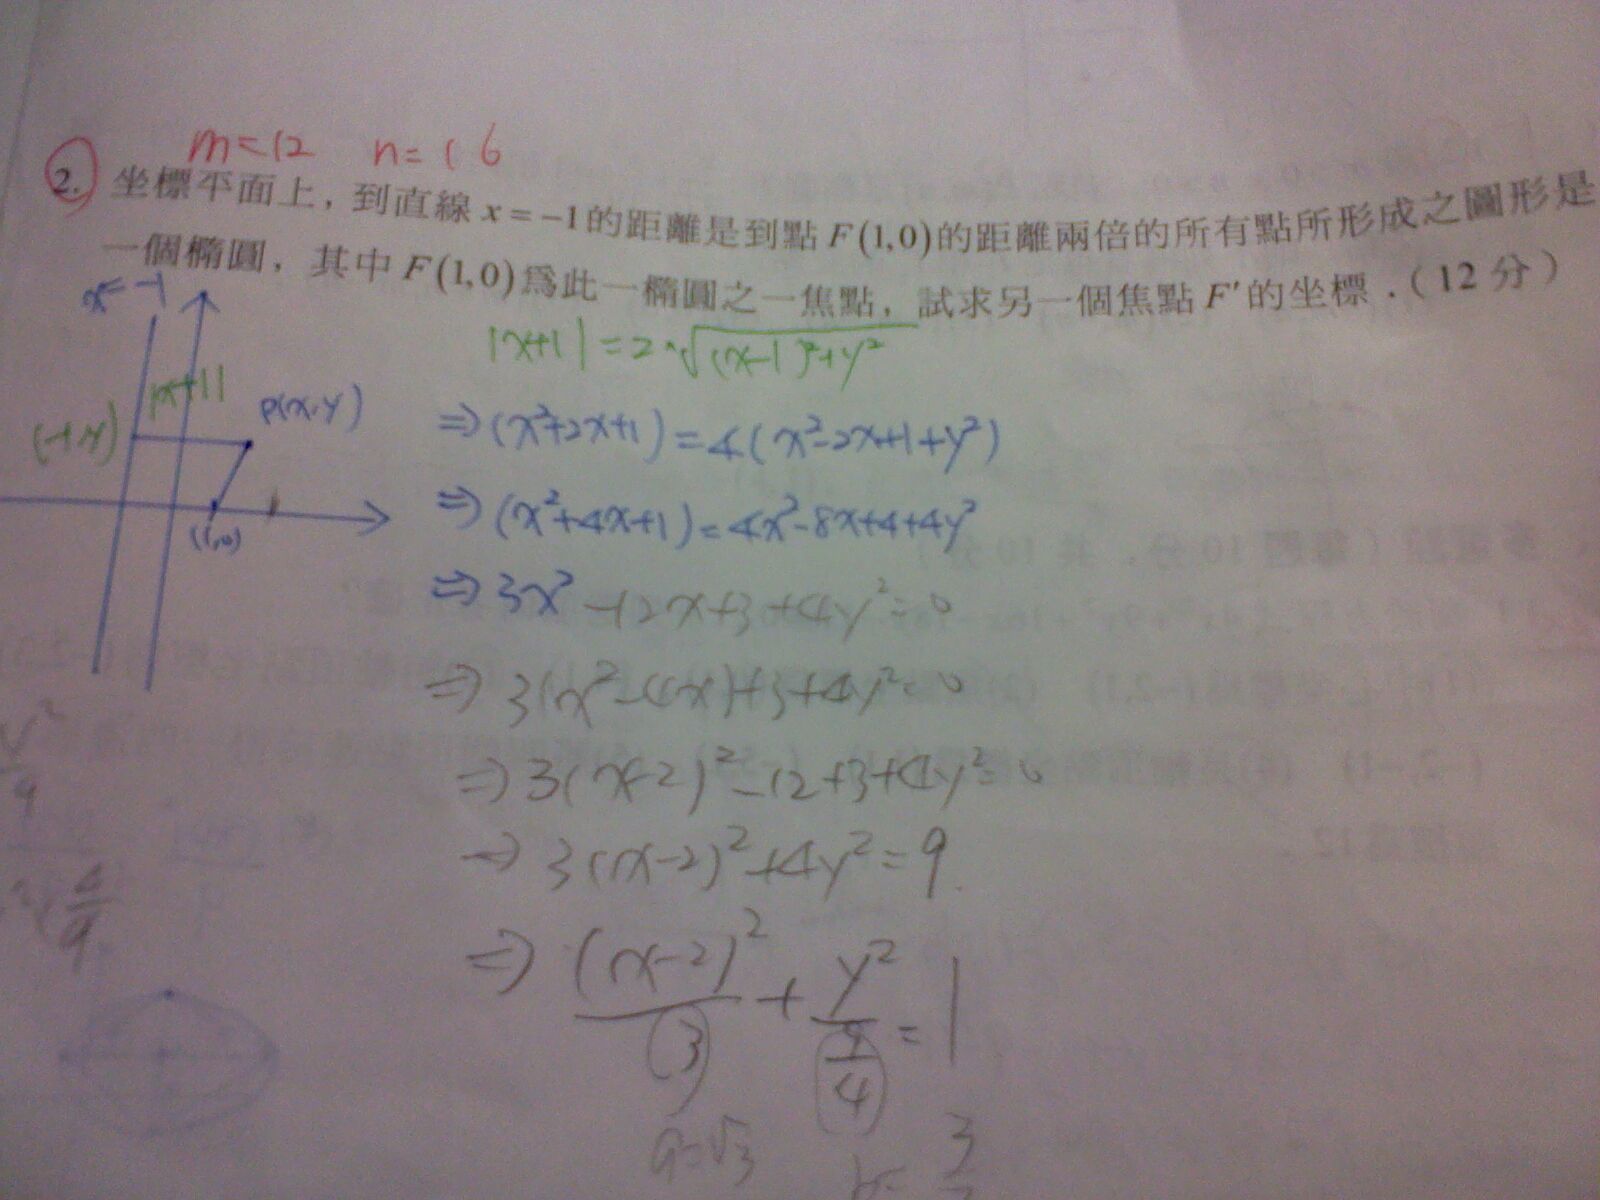 m=12 n=16
2. 坐標平面上，到直線 x=-1的距離是到點F(1,0)的距離兩倍的所有點所形成之圖形是
一個橢圓，其中F(1,0)為此一橢圓之一焦點，試求另一個焦點F'的坐標．(12分)
x=-1
|x+1|=2·√(x-1)²+y²
|x+1|
P(x,y)
(-1,y)
(1,0)
⇒(x²+2x+1)=4(x²-2x+1+y²)
⇒(x²+4x+1)=4x²-8x+4+4y²
⇒3x²-12x+3+4y²=0
⇒3(x²-4x)+3+4y²=0
⇒3(x-2)²-12+3+4y²=0
→3(x-2)²+4y²=9
⇒(x-2)²/3+y²/(9/4)=1
a=√3